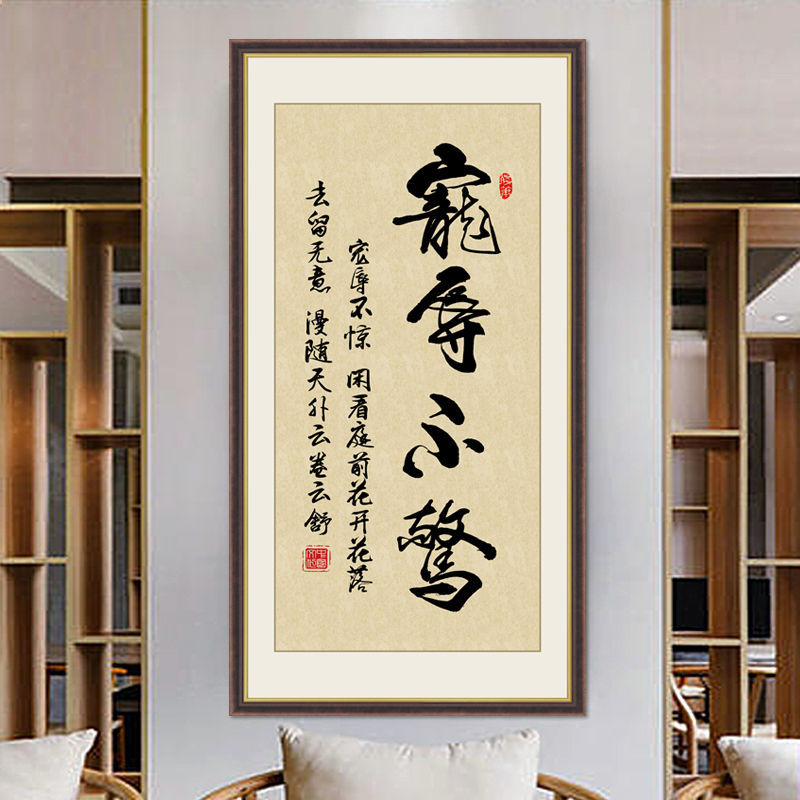 寵辱不驚
宠辱不惊 闲看庭前花开花落
去留无意 漫随天外云卷云舒